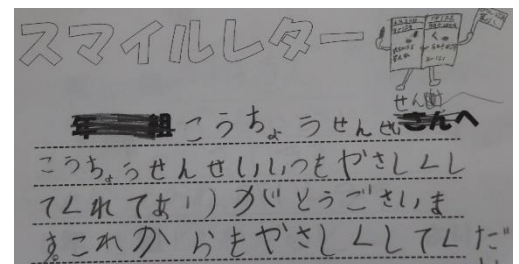 スマイルレター
こうちょうせんせいへ
こうちょうせんせいいつもやさしくし
てくれてありがとうございま
す。これからもやさしくしてくだ